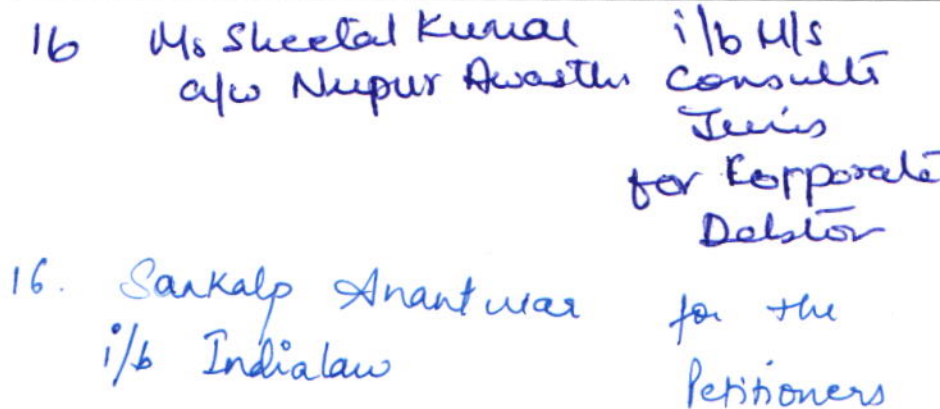 16 Ms Sheetal Kumar i/b M/s
a/w Nupur Awasthi Consulta
Juris
for Corporate
Debtor
16. Sankalp Anantwar for the
i/b Indialaw Petitioners